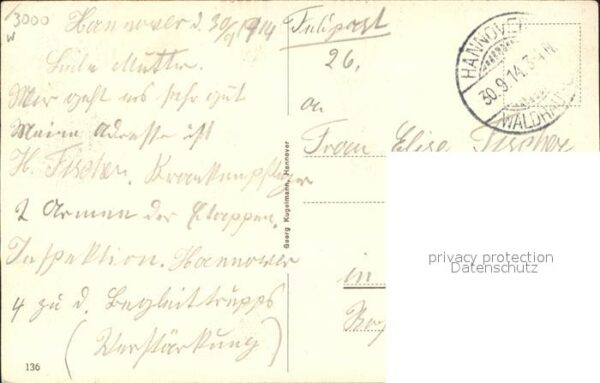 3000
W
Hannover d. 30/9 1914
Liebe Mutter.
Mir geht es sehr gut
Meine Adresse ist
H. Fischer. Krankenpfleger
2 Armee der Etappen
Inspektion. Hannover
4 zu d. Begleittrupps
(Verstärkung)
136
Georg Kugelmann, Hannover
Feldpost
26.
an
Frau Elise Fischer
in
HANNOVER
30.9.14. 3-4 N.
WALDHAU
privacy protection
Datenschutz